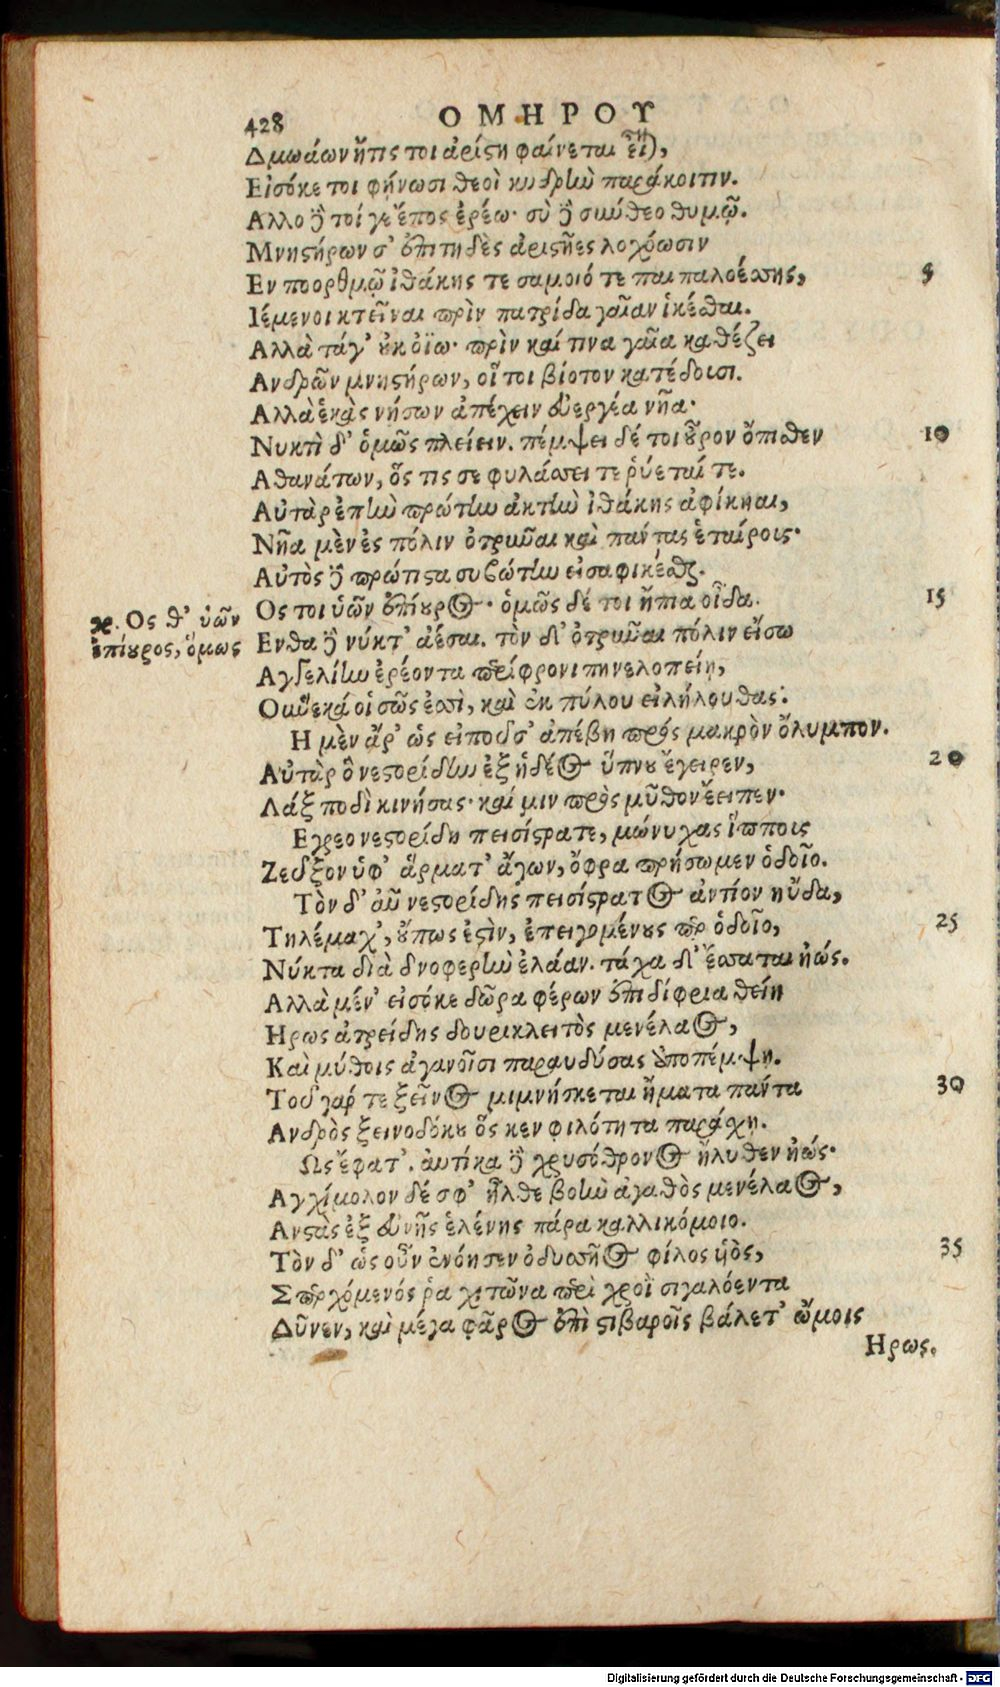 428 ΟΜΗΡΟΥ
Δμωάων ἥτις τοι ἀρίστη φαίνεται εἶναι,
Εἰσόκε τοι φήνωσι θεοὶ κυδρὴν παράκοιτιν.
Αλλο δέ τοί γε ἔπος ἐρέω· σὺ δὲ σύνθεο θυμῷ.
Μνηστήρων σ' ἐπιτηδὲς ἀριστῆες λοχόωσιν
Εν πορθμῷ ἰθάκης τε σαμοιό τε παιπαλοέσσης, 5
Ιέμενοι κτεῖναι πρὶν πατρίδα γαῖαν ἱκέσθαι.
Αλλὰ τάγ' οὐκ ὀΐω· πρὶν καί τινα γαῖα καθέζει
Ανδρῶν μνηστήρων, οἵ τοι βίοτον κατέδουσι.
Αλλὰ ἑκὰς νήσων ἀπέχειν εὐεργέα νῆα·
Νυκτὶ δ' ὁμῶς πλείειν. πέμψει δέ τοι οὖρον ὄπισθεν 10
Αθανάτων, ὅς τις σε φυλάσσει τε ῥύεταί τε.
Αὐτὰρ ἐπὴν πρώτην ἀκτὴν ἰθάκης ἀφίκηαι,
Νῆα μὲν ἐς πόλιν ὀτρῦναι καὶ πάντας ἑταίρους·
Αὐτὸς δὲ πρώτιστα συβώτην εἰσαφικέσθαι.
Ος τοι ὑῶν ἐπίουρος· ὁμῶς δέ τοι ἤπια οἶδα. 15
γρ. Ος θ' ὑῶν
ἐπίουρος, ὅμως
Ενθα δὲ νύκτ' ἀέσαι. τὸν δ' ὀτρῦναι πόλιν εἴσω
Αγγελίην ἐρέοντα περίφρονι πηνελοπείῃ,
Ουνεκά οἱ σῶς ἐσσὶ, καὶ ἐκ πύλου εἰλήλουθας.
Η μὲν ἄρ' ὣς εἰποῦσ' ἀπέβη πρὸς μακρὸν ὄλυμπον.
Αὐτὰρ ὃ νεστορίδην ἐξ ἡδέος ὕπνου ἔγειρεν, 20
Λάξ ποδὶ κινήσας· καί μιν πρὸς μῦθον ἔειπεν·
Εγρεο νεστορίδη πεισίστρατε, μώνυχας ἵππους
Ζεῦξον ὑφ' ἅρματ' ἄγων, ὄφρα πρήσωμεν ὁδοῖο.
Τὸν δ' αὖ νεστορίδης πεισίστρατος ἀντίον ηὔδα,
Τηλέμαχ', οὔπως ἐστὶν, ἐπειγομένους περ ὁδοῖο, 25
Νύκτα διὰ δνοφερὴν ἐλάαν. τάχα δ' ἔσσεται ἠώς.
Αλλὰ μέν' εἰσόκε δῶρα φέρων ἐπιδίφρια θείη
Ηρως ἀτρείδης δουρικλειτὸς μενέλαος,
Καὶ μύθοις ἀγανοῖσι παραυδήσας ἀποπέμψῃ.
Τοῦ γάρ τε ξεῖνος μιμνήσκεται ἤματα πάντα 30
Ανδρὸς ξεινοδόκου ὅς κεν φιλότητα παράσχῃ.
Ως ἔφατ'. αὐτίκα δὲ χρυσόθρονος ἤλυθεν ἠώς·
Αγχίμολον δέ σφ' ἦλθε βοὴν ἀγαθὸς μενέλαος,
Ανστὰς ἐξ εὐνῆς ἑλένης πάρα καλλικόμοιο.
Τὸν δ' ὡς οὖν ἐνόησεν ὀδυσσῆος φίλος υἱὸς, 35
Σπερχόμενός ῥα χιτῶνα περὶ χροῒ σιγαλόεντα
Δῦνεν, καὶ μέγα φᾶρος ἐπὶ στιβαροῖς βάλετ' ὤμοις
Ηρως.
Digitalisierung gefördert durch die Deutsche Forschungsgemeinschaft - DFG